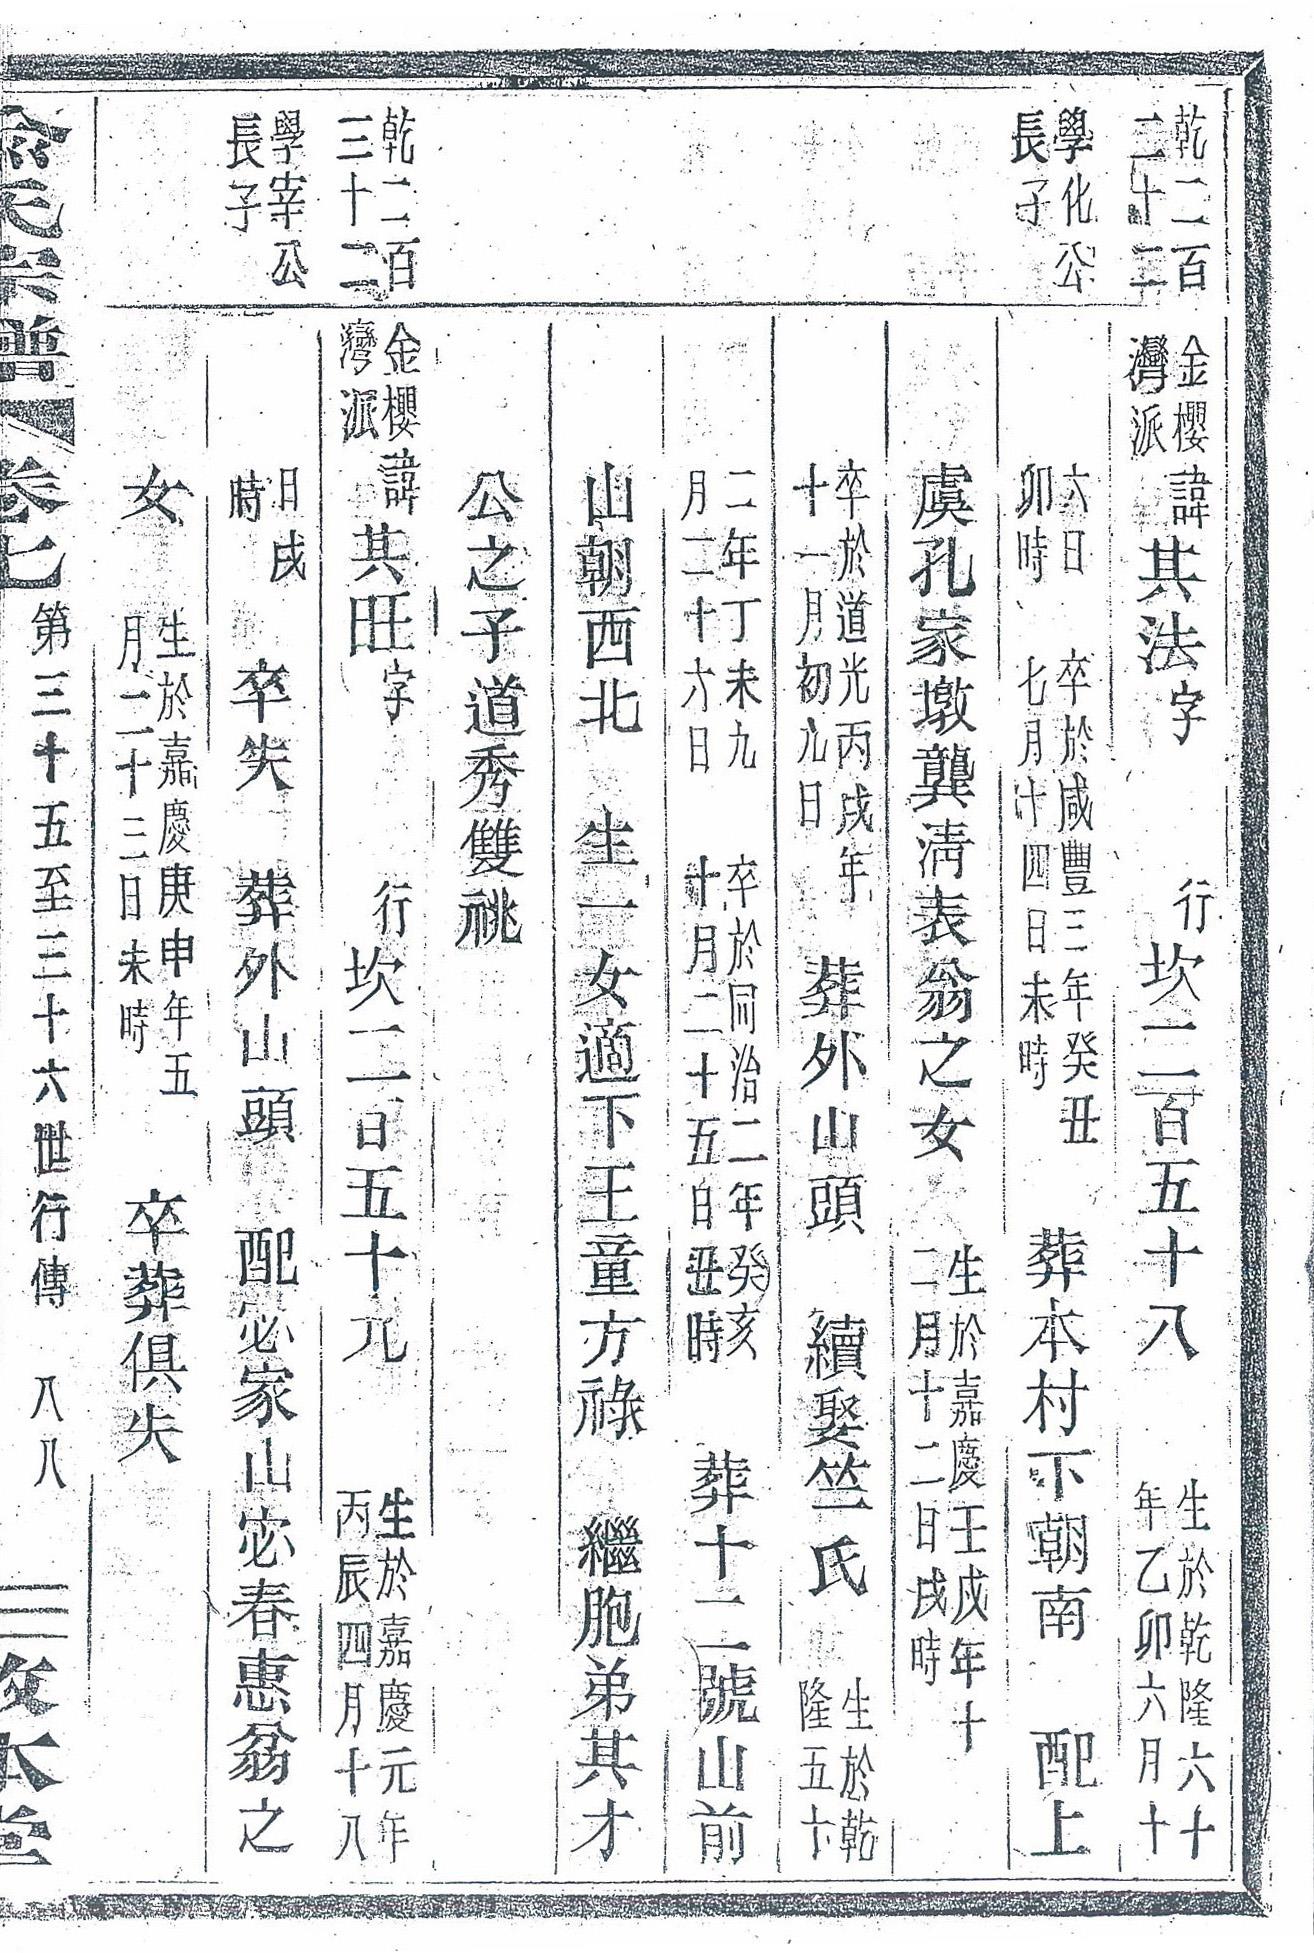 乾二百
二十二
學化公
長子
金櫻
灣派
諱其法字 行坎二百五十八 生於乾隆六十
年乙卯六月十
六日
卯時
卒於咸豐三年癸丑
七月十四日未時
葬本村下朝南 配上
虞孔家墩龔淸表翁之女 生於嘉慶壬戌年十
二月十二日戌時
卒於道光丙戌年
十一月初九日
葬外山頭 續娶竺氏 生於乾
隆五十
二年丁未九
月二十六日
卒於同治二年癸亥
十月二十五日丑時
葬十二號山前
山朝西北 生一女適下王童方祿 繼胞弟其才
公之子道秀雙祧
乾二百
三十二
學宰公
長子
金櫻
灣派
諱其旺字 行坎二百五十九 生於嘉慶元年
丙辰四月十八
日戌
時
卒失 葬外山頭 配宓家山宓春惠翁之
女 生於嘉慶庚申年五
月二十三日未時
卒葬俱失
氏宗譜 卷七 第三十五至三十六世行傳 八八 敦本堂